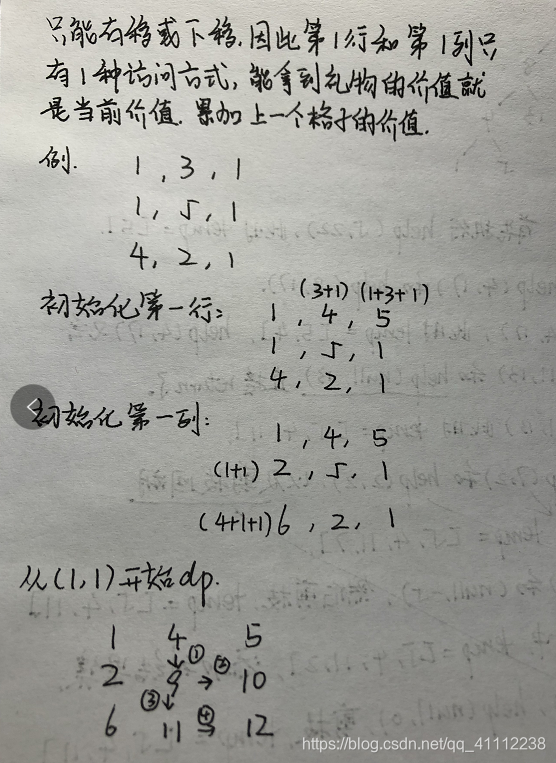 只能右移或下移.因此第1行和第1列只
有1种访问方式,能拿到礼物的价值就
是当前价值.累加上一个格子的价值.
例.
1 , 3 , 1
1 , 5 , 1
4 , 2 , 1
初始化第一行: (3+1) (1+3+1)
1 , 4 , 5
1 , 5 , 1
4 , 2 , 1
初始化第一列:
1 , 4 , 5
(1+1) 2 , 5 , 1
(4+1+1) 6 , 2 , 1
从(1,1)开始dp.
1 4 5
↓ ①
2 9 → ② 10
③ ↓
6 11 → ④ 12
https://blog.csdn.net/qq_41112238